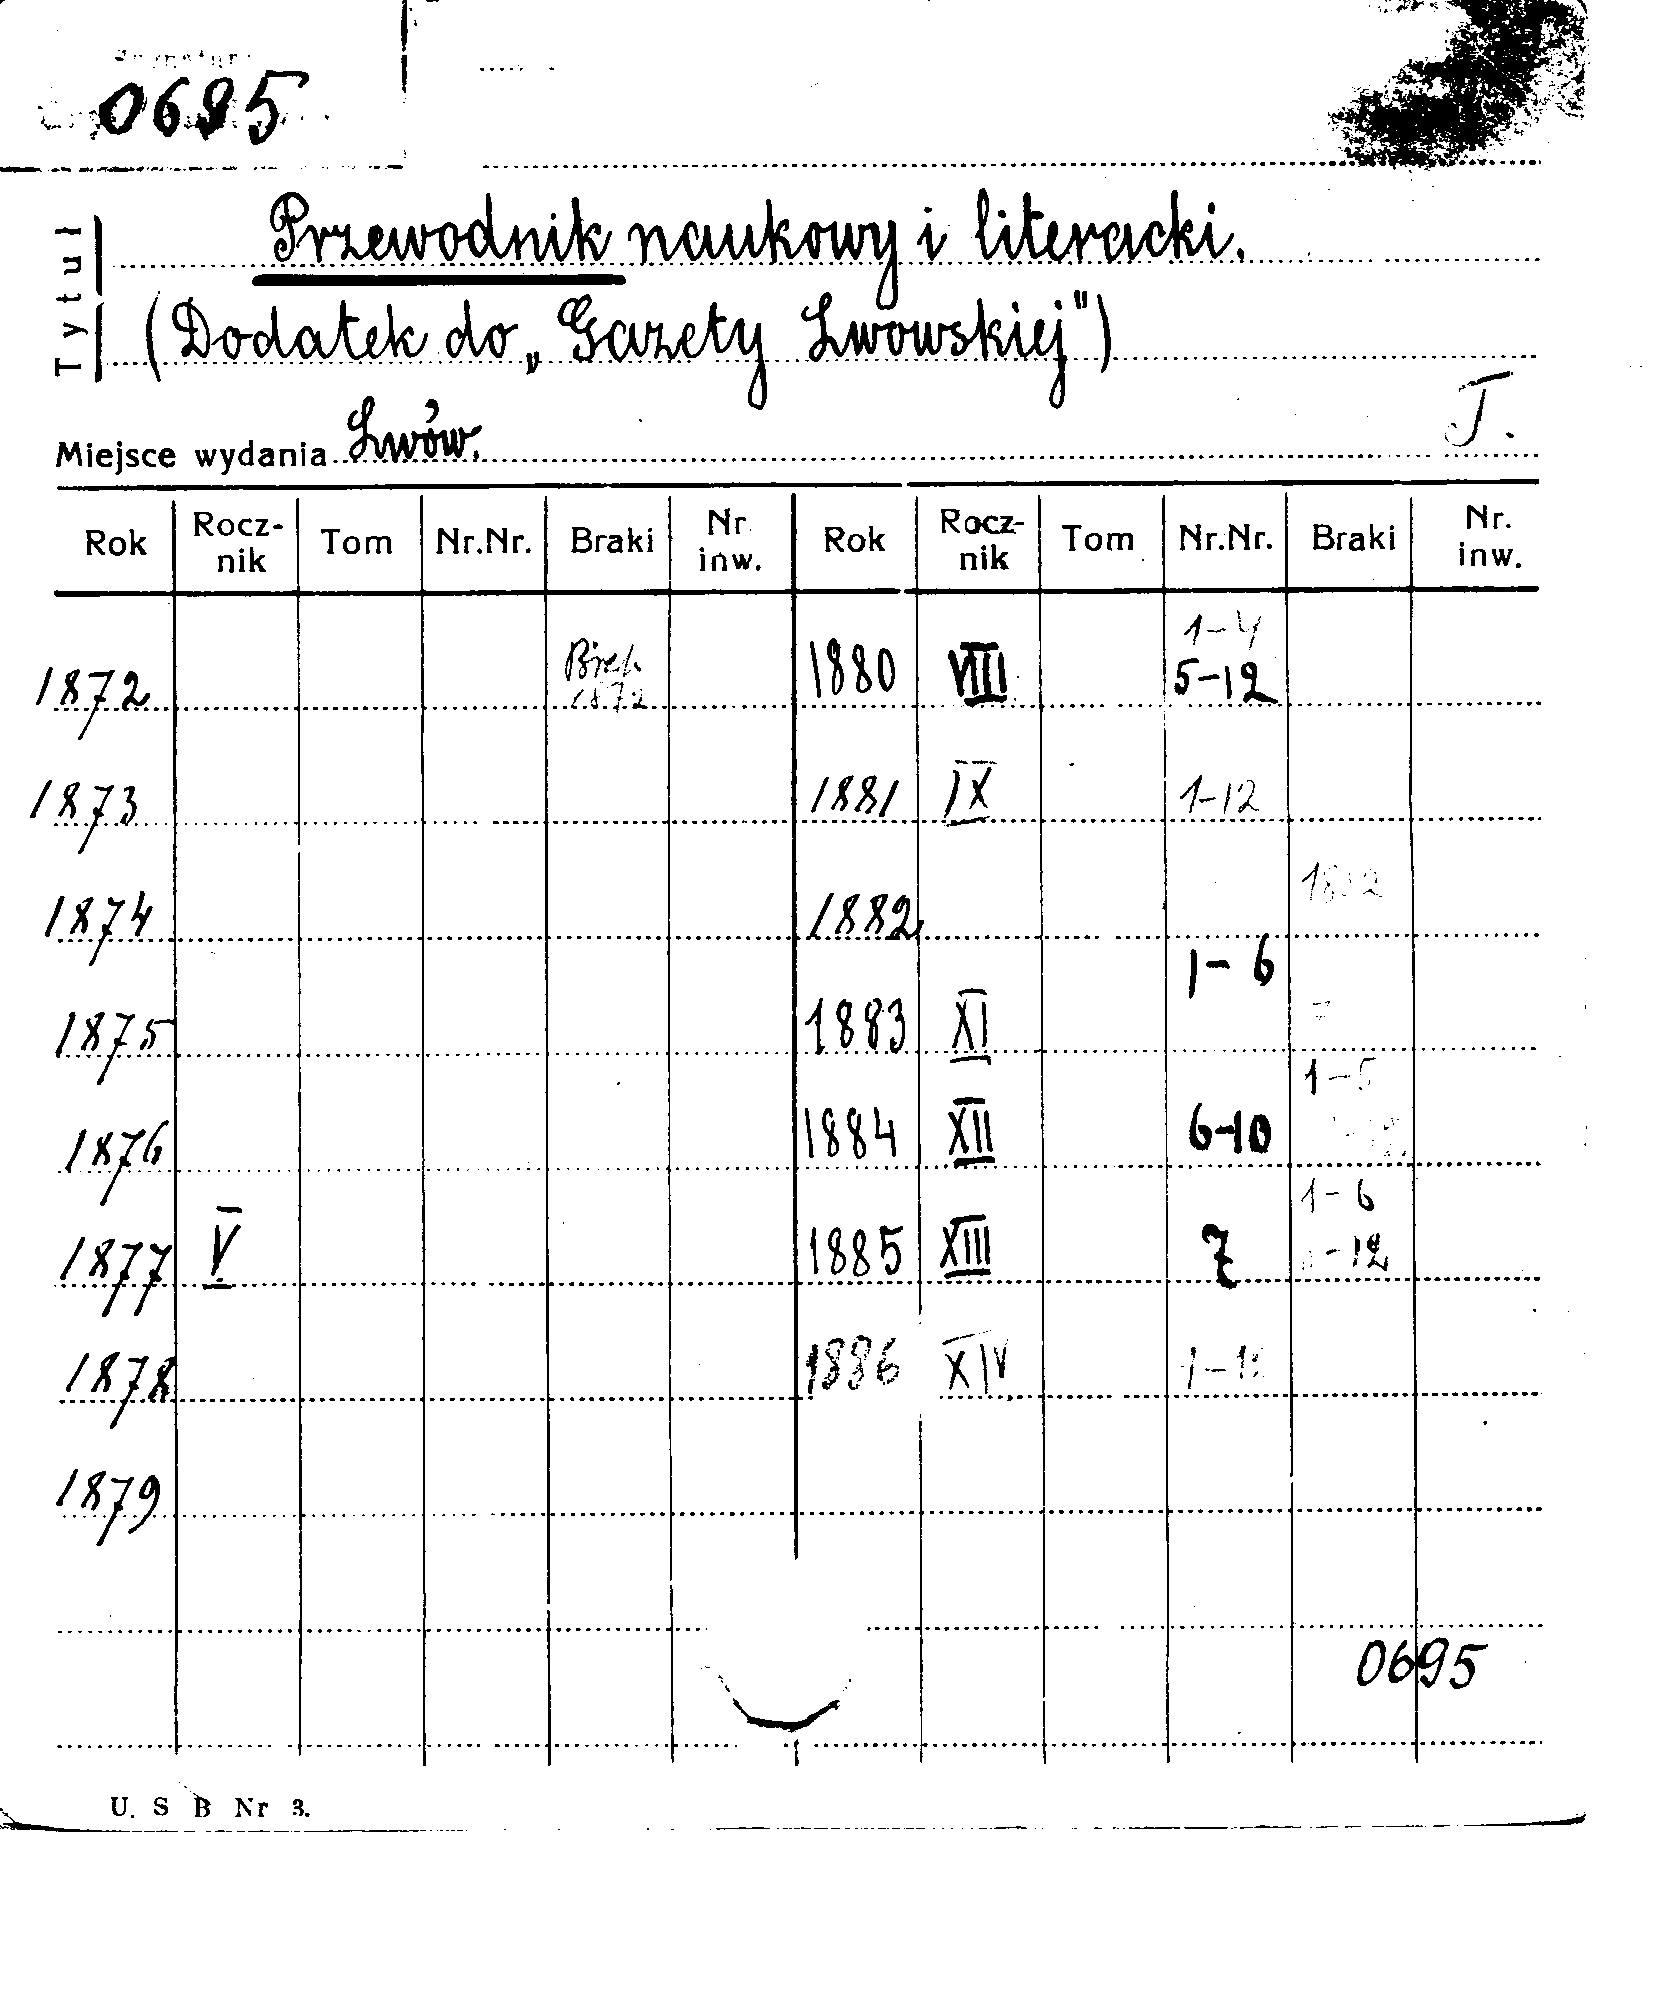 0695
Tytuł
Przewodnik naukowy i literacki.
(Dodatek do „Gazety Lwowskiej")
T.
Miejsce wydania Lwów.
Rok Rocz-nik Tom Nr.Nr. Braki Nr inw. Rok Rocz-nik Tom Nr.Nr. Braki Nr. inw.
1-4
1872 1872 1880 VIII 5-12
1873 1881 IX 1-12
1874 1882
1-6
1875 1883 XI
1-5
1876 1884 XII 6-10
1-6
1877 V 1885 XIII 7 -12
1878 1886 XIV
1879
0695
U. S B Nr 3.